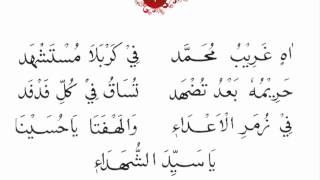 اٰهٍ غَرِيْبُ مُحَمَّد فِيْ كَرْبَلَا مُسْتَشْهَد
حَرِيْمُهٗ بَعْدُ تُضْهَد تُسَاقُ فِيْ كُلِّ فَدْفَد
فِيْ زُمَرِ الْاَعْدَاءِ وَالَهْفَتَا يَاحُسَيْنَا
يَا سَيِّدَ الشُّهَدَاءِ